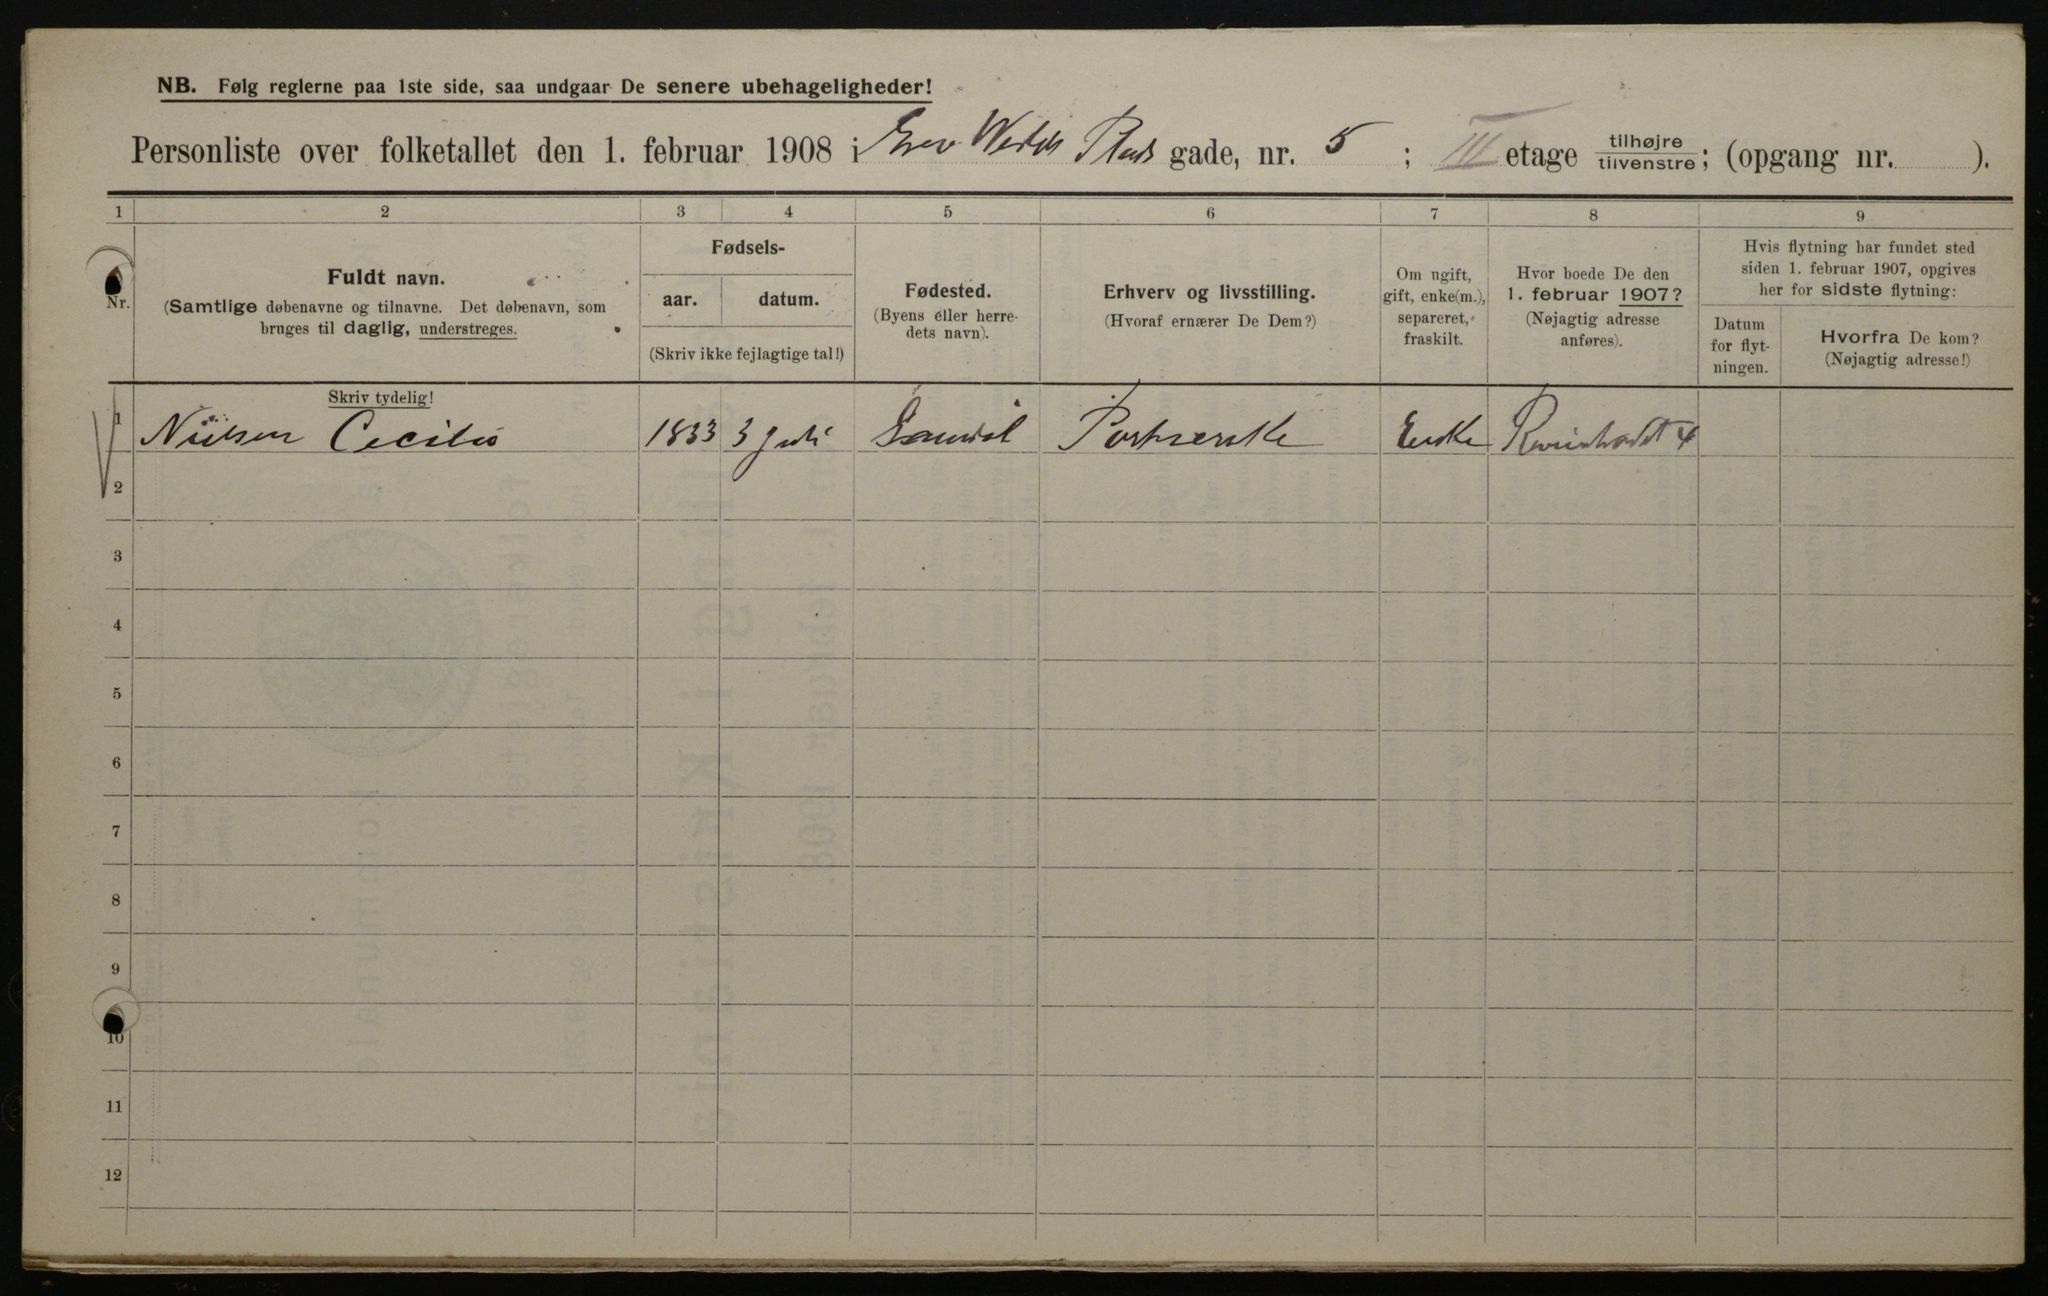 NB. Følg reglerne paa 1ste side, saa undgaar De senere ubehageligheder!
Personliste over folketallet den 1. februar 1908 i Grev Wedels Plads gade, nr. 5 ; III etage tilhøjre / tilvenstre; (opgang nr. ).
1 2 3 4 5 6 7 8 9
Nr.
Fuldt navn.
(Samtlige døbenavne og tilnavne. Det døbenavn, som
bruges til daglig, understreges.
Fødsels-
aar. datum.
(Skriv ikke fejlagtige tal!)
Fødested.
(Byens eller herre-
dets navn).
Erhverv og livsstilling.
(Hvoraf ernærer De Dem?)
Om ugift,
gift, enke(m.),
separeret,
fraskilt.
Hvor boede De den
1. februar 1907?
(Nøjagtig adresse
anføres).
Hvis flytning har fundet sted
siden 1. februar 1907, opgives
her for sidste flytning:
Datum
for flyt-
ningen.
Hvorfra De kom?
(Nøjagtig adresse!)
Skriv tydelig!
1 Nielsen Cecilie 1833 3 Juli Enke 4
2
3
4
5
6
7
8
9
10
11
12